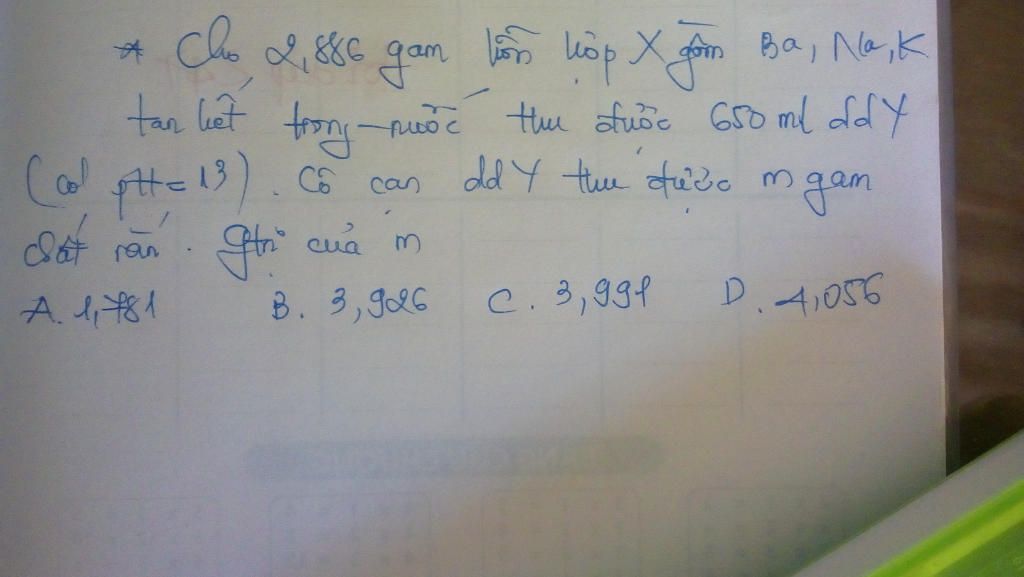 * Cho 2,886 gam hỗn hợp X gồm Ba, Na, K
tan hết trong nước thu được 650 ml dd Y
(có pH = 13). Cô cạn dd Y thu được m gam
chất rắn. Gtrị của m
A. 1,781 B. 3,926 C. 3,991 D. 4,056